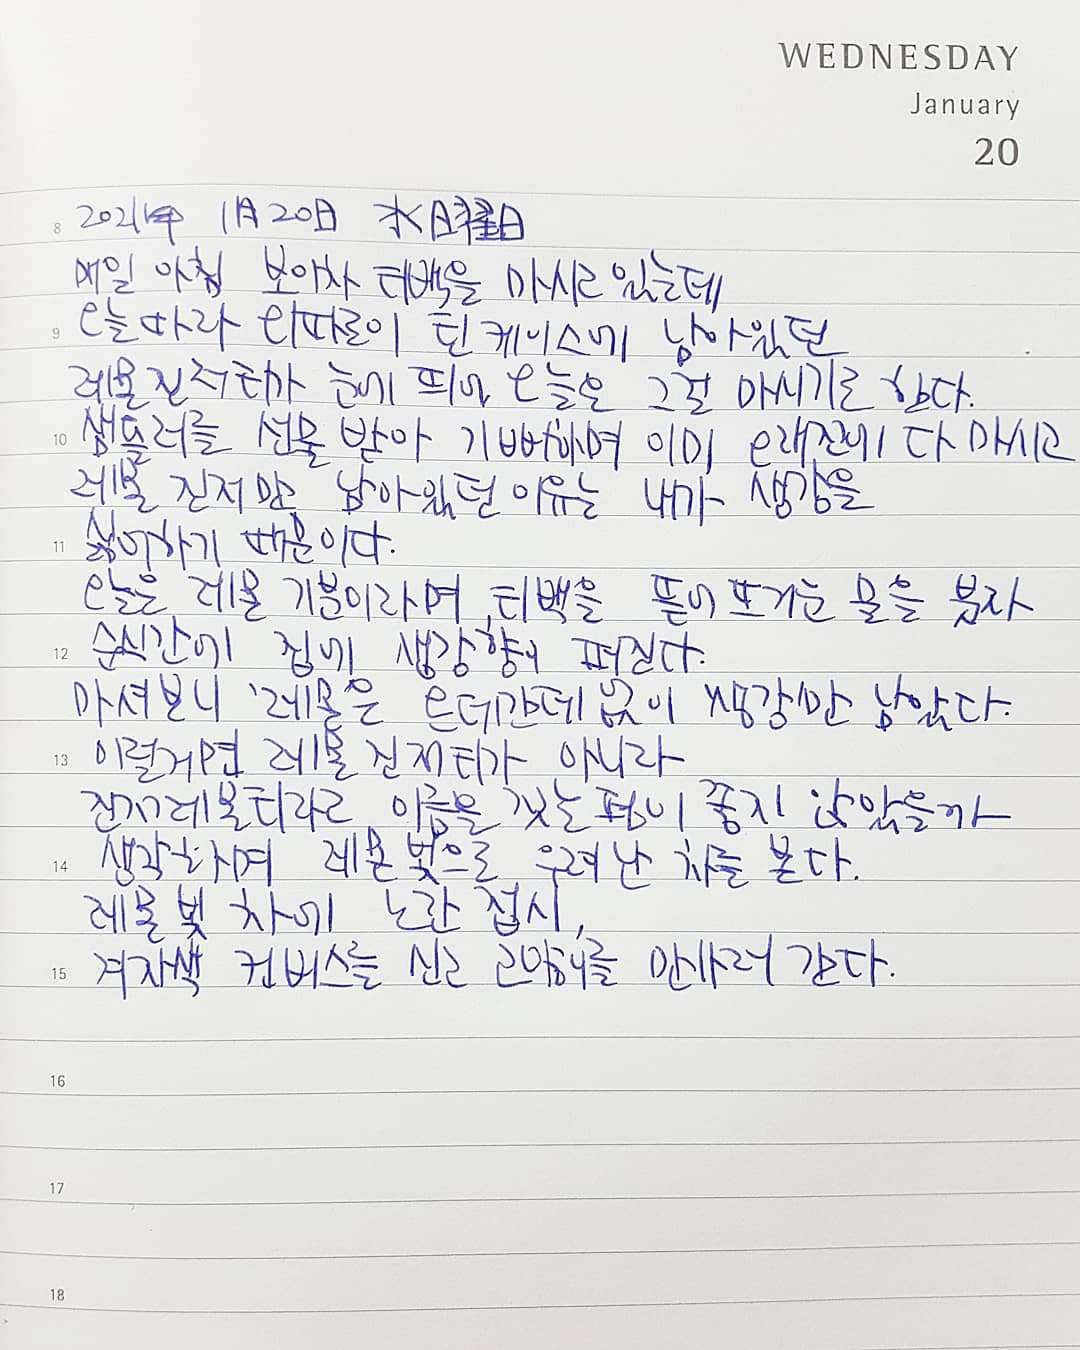 WEDNESDAY
January
20
8 2021年 1月 20日 水曜日
매일 아침 보이차 티백을 마시고 있는데
9 오늘따라 덩그러니 틴케이스에 남아있던
레몬진저티가 눈에 띄어 오늘은 그걸 마시기로 한다.
10 샘플러를 선물 받아 기뻐하며 이미 오래전에 다 마시고
레몬 진저만 남아있던 이유는 내가 생강을
11 싫어하기 때문이다.
오늘은 레몬 기분이라며 티백을 뜯어 뜨거운 물을 붓자
12 순식간에 집에 생강향이 퍼진다.
마셔보니 레몬은 온데간데없이 생강만 남았다.
13 이럴거면 레몬 진저티가 아니라
진저레몬티라고 이름을 짓는 편이 좋지 않았을까
14 생각하며 레몬빛으로 우려난 차를 본다.
레몬빛 차에 노란 접시,
15 겨자색 컨버스를 신고 고양이를 만나러 간다.
16
17
18